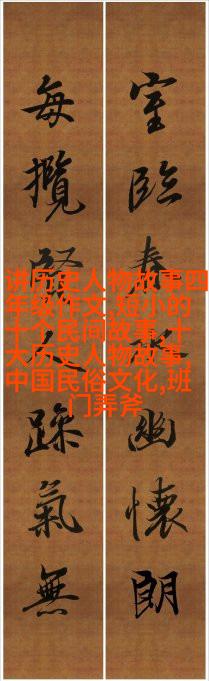 室臨春水幽懷朗
每攬賢躁氣無
讲历史人物故事四
年级作文,短小的
十个民间故事,十
大历史人物故事,
中国民俗文化,班
门弄斧